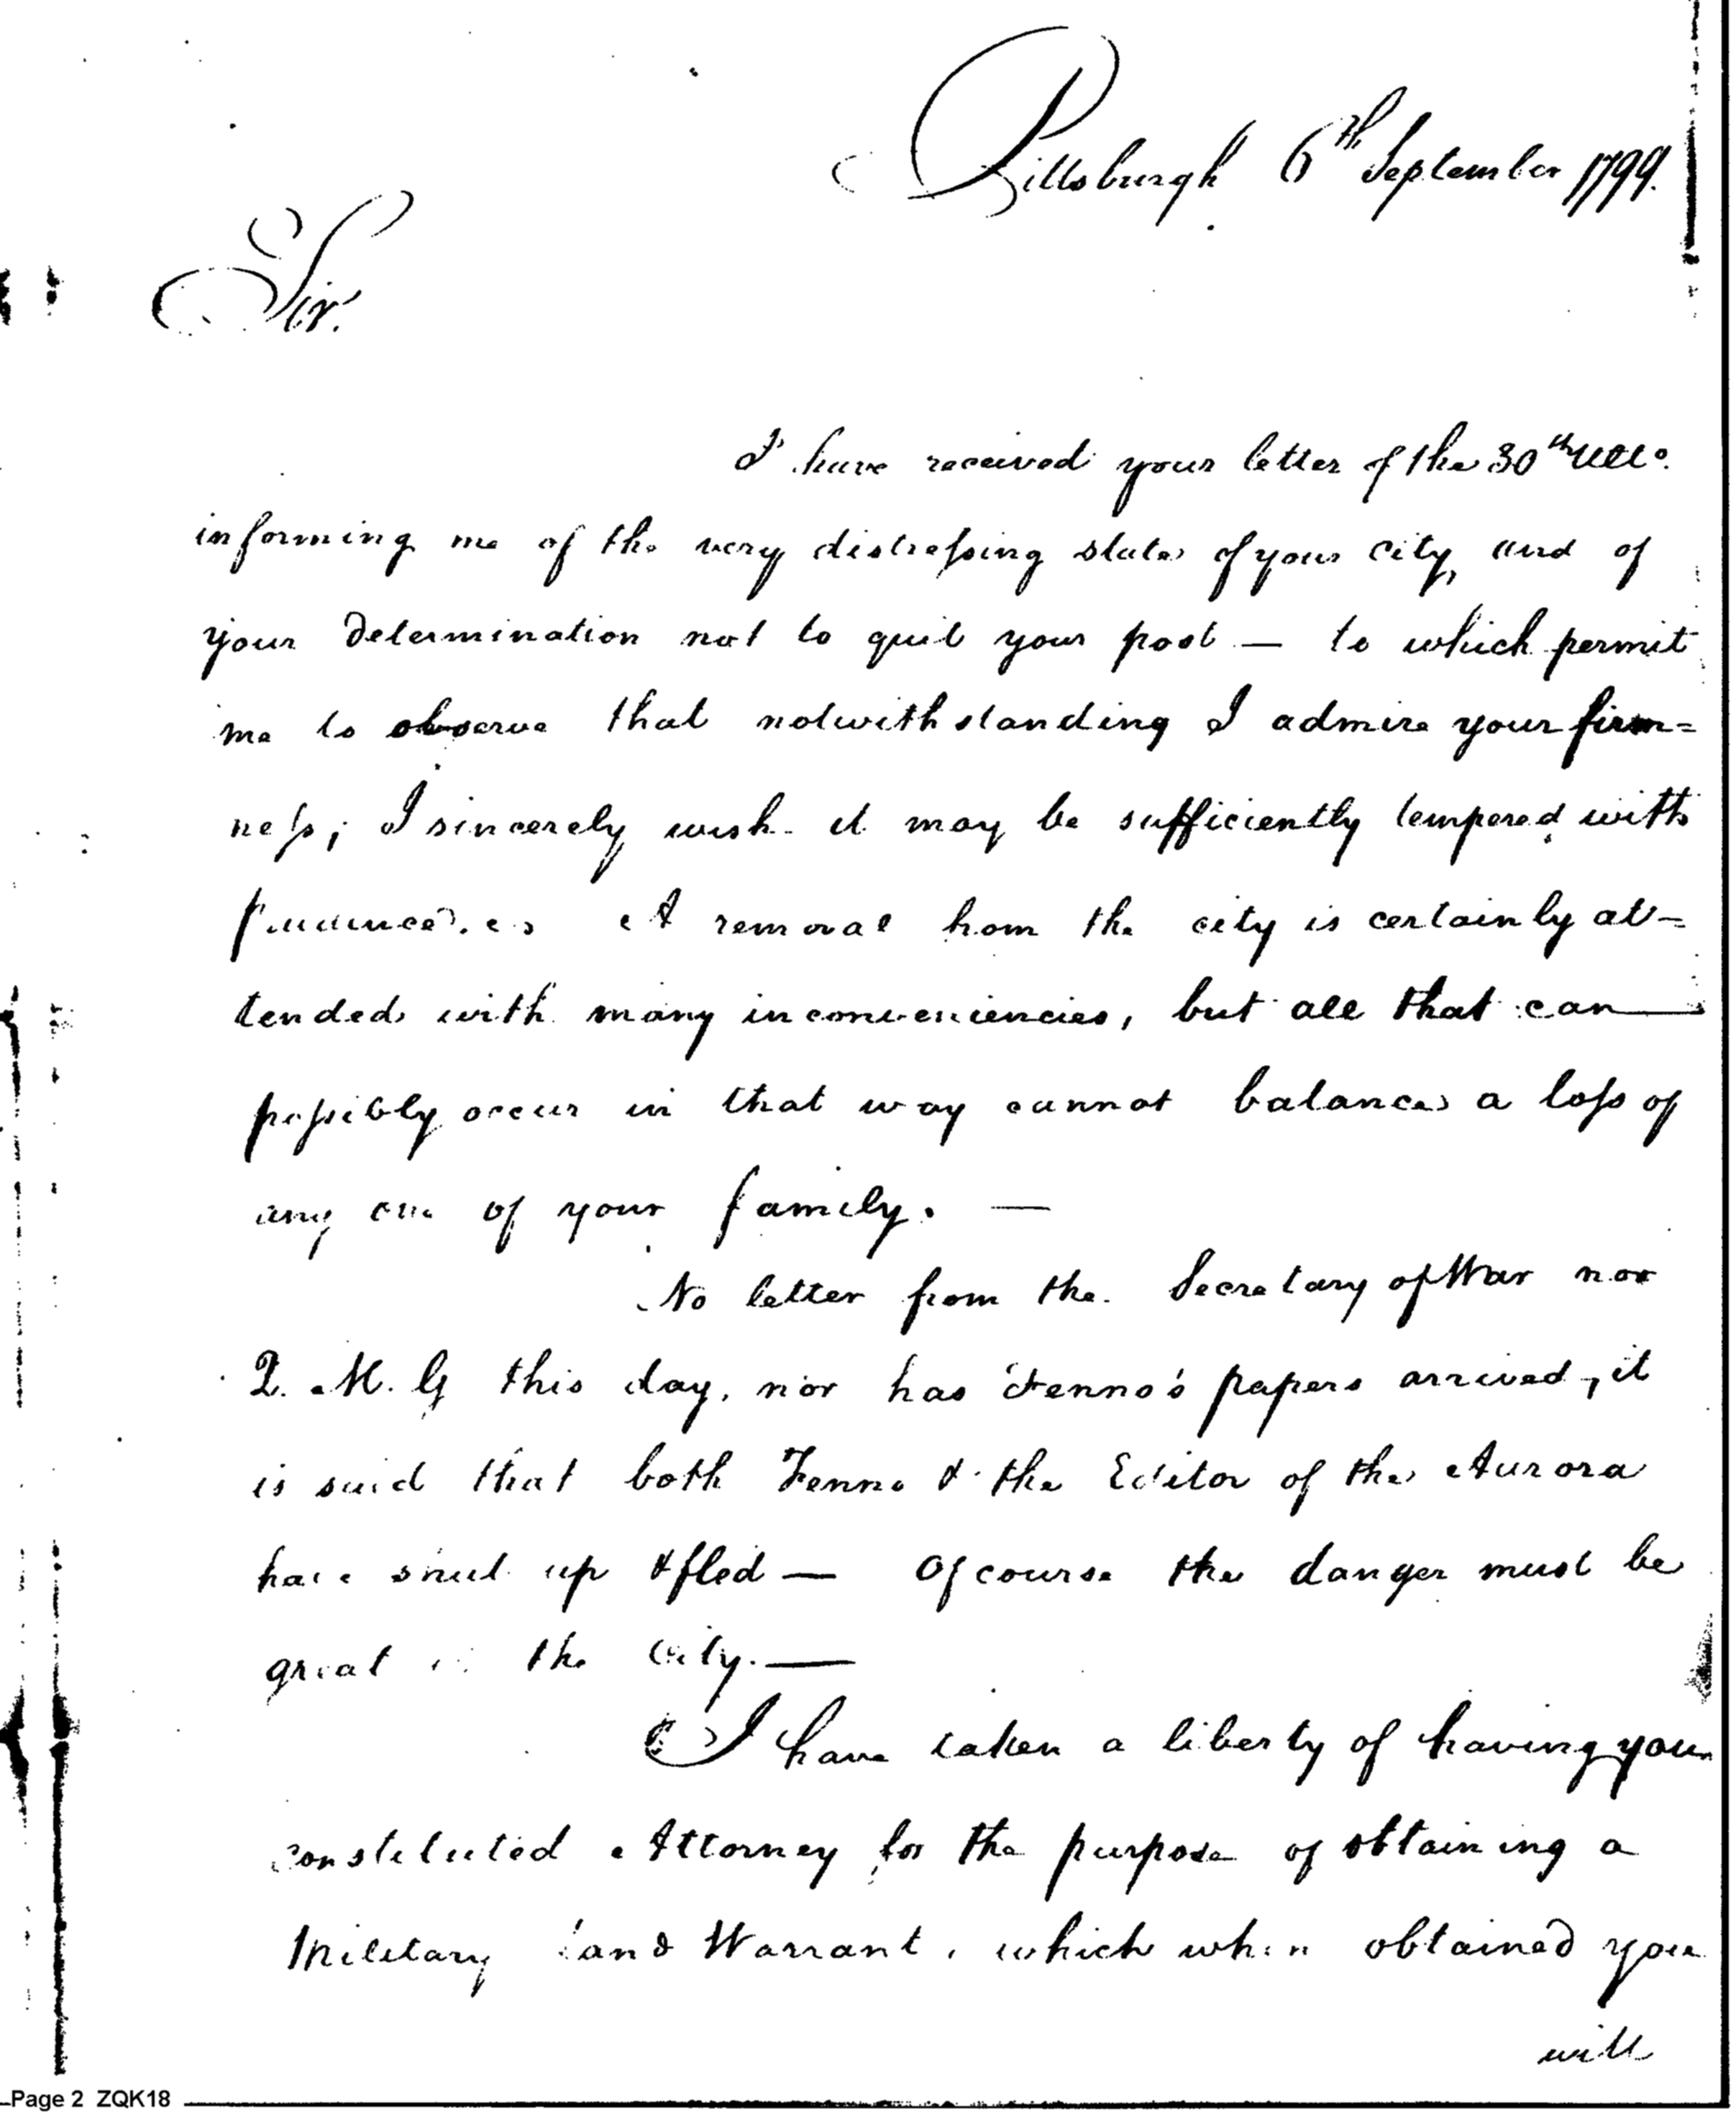 Pittsburgh 6th September 1799.
Sir.
I have received your letter of the 30th Ulto.
informing me of the very distressing state of your city, and of
your determination not to quit your post — to which permit
me to observe that notwithstanding I admire your firm=
ness; I sincerely wish it may be sufficiently tempered with
prudence. A removal from the city is certainly at=
tended with many inconveniencies, but all that can
possibly occur in that way cannot balance a loss of
any one of your family. —
No letter from the Secretary of War nor
Q. M. G this day, nor has Fenno's papers arrived, it
is said that both Fenno & the Editor of the Aurora
have shut up & fled — Of course the danger must be
great in the City. —
I have taken a liberty of having you
constituted Attorney for the purpose of obtaining a
Military Land Warrant, which when obtained you
will
Page 2 ZQK18